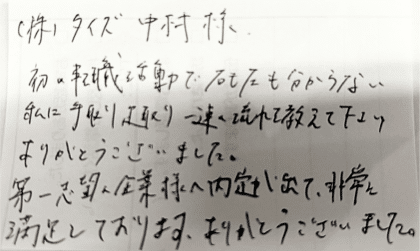 (株)タイズ 中村 様、
初の転職活動で右も左も分からない
私に手取り足取り一連の流れを教えて下さり
ありがとうございました。
第一志望の企業様へ内定が出て、非常に
満足しております。ありがとうございました。